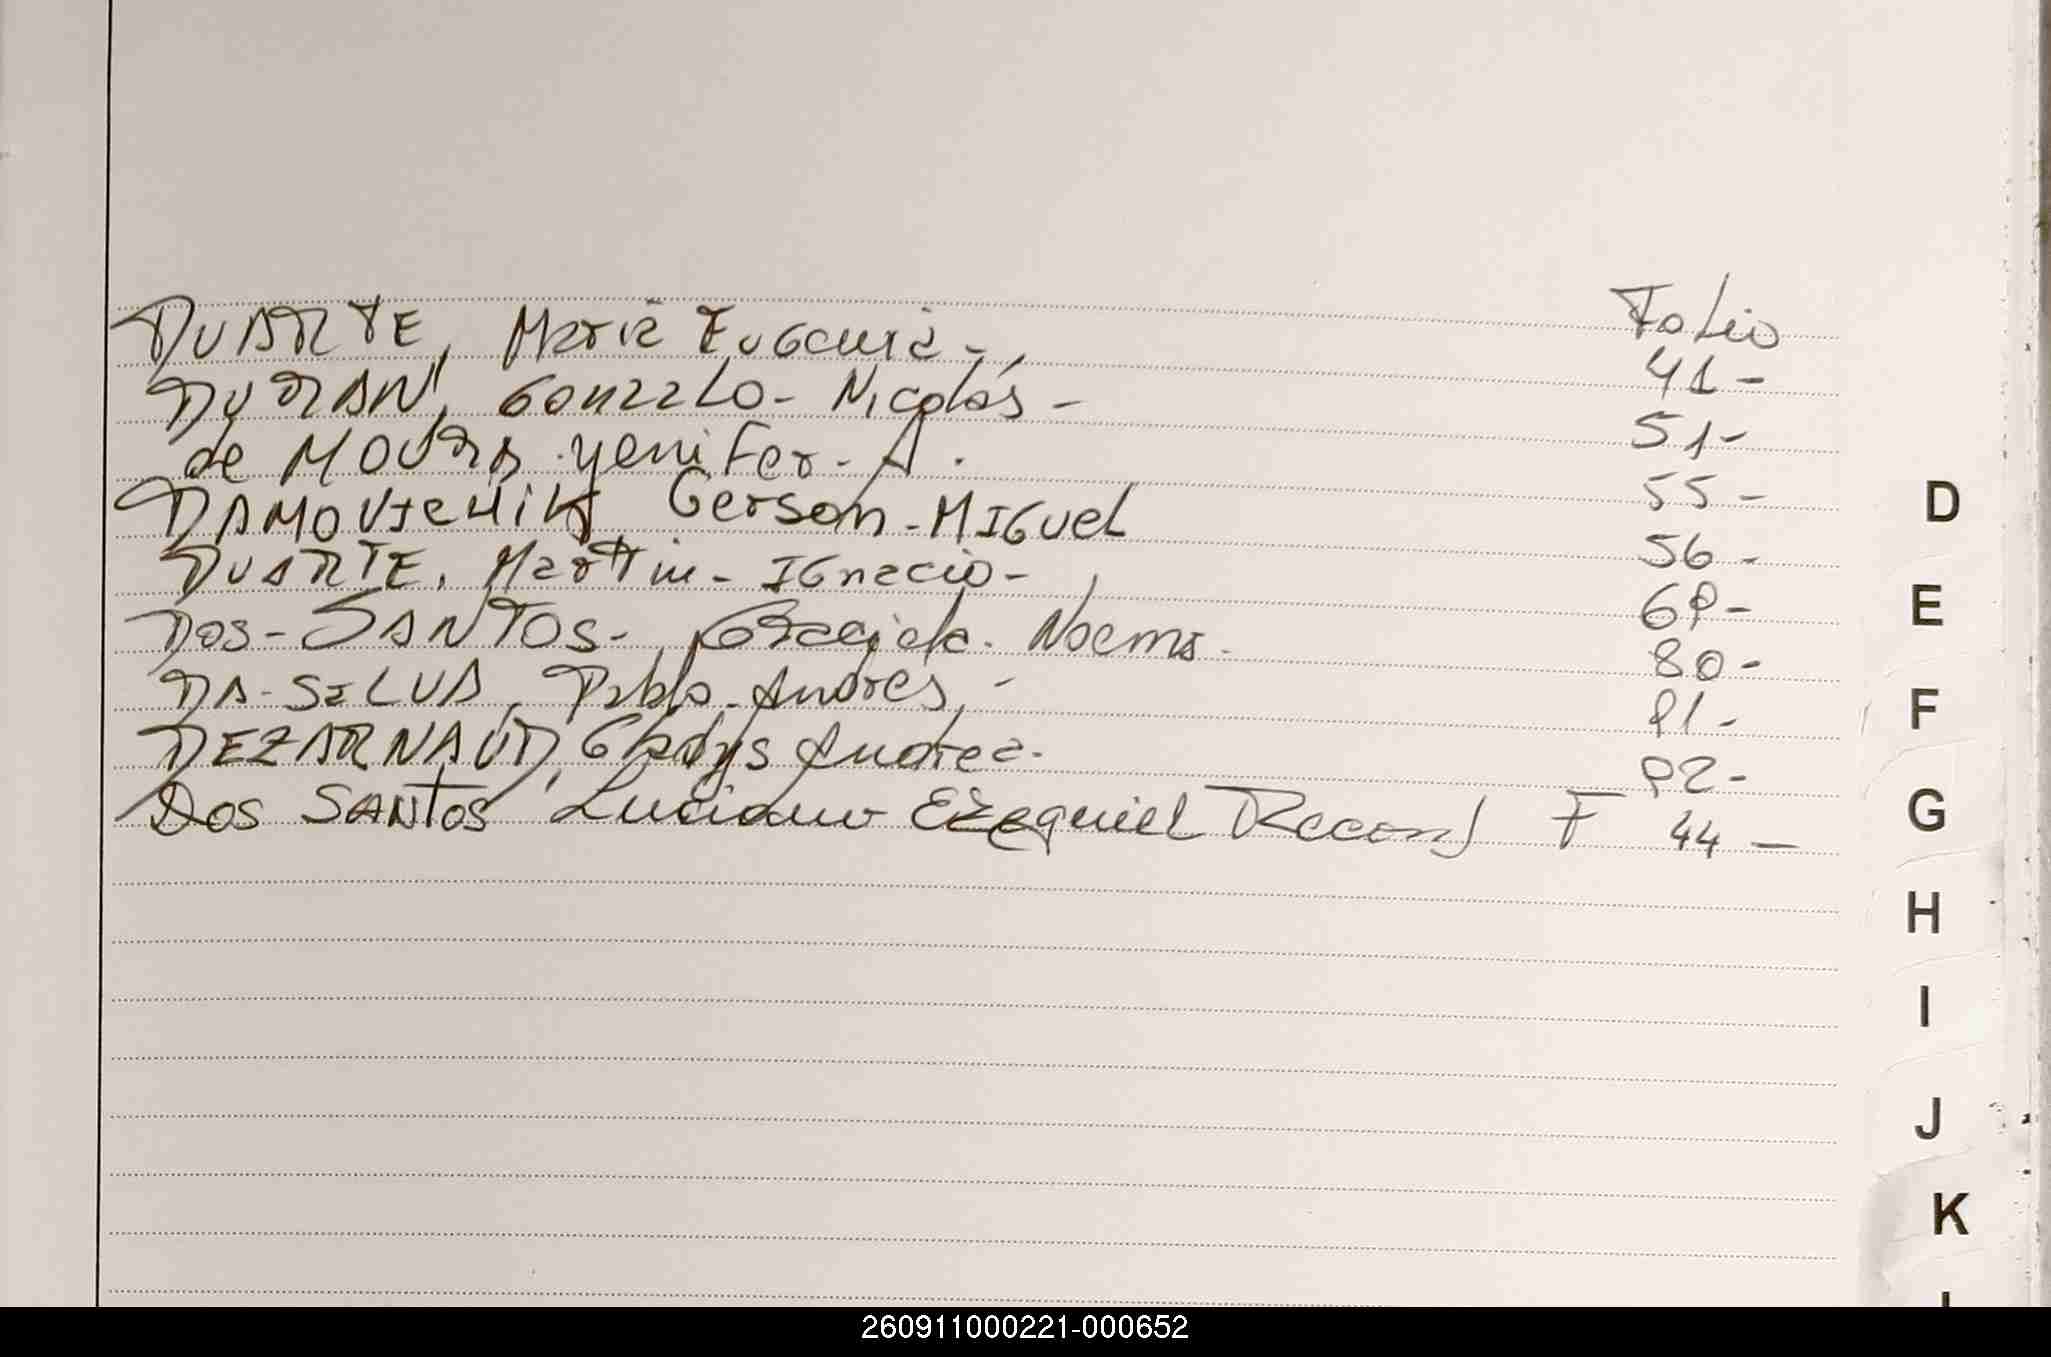 Folio
DUARTE, Maria Eugenia-, 41-
DURAN, Gonzalo- Nicolás- 51-
de MOURA. yenifer- A. 55-
DAMOVICHIK Gerson-MIGuel 56-
DUARTE, Martin- IGnacio- 68-
DOS-SANTOS-, Graciela. Noemi. 80-
DA-SELVA, Pablo-Andres,- 81-
DEZARNAUD, Gladys Andrea- 82-
DOS SANTOS, Luciano EZEquiel F 44-
D
E
F
G
H
I
J
K
260911000221-000652